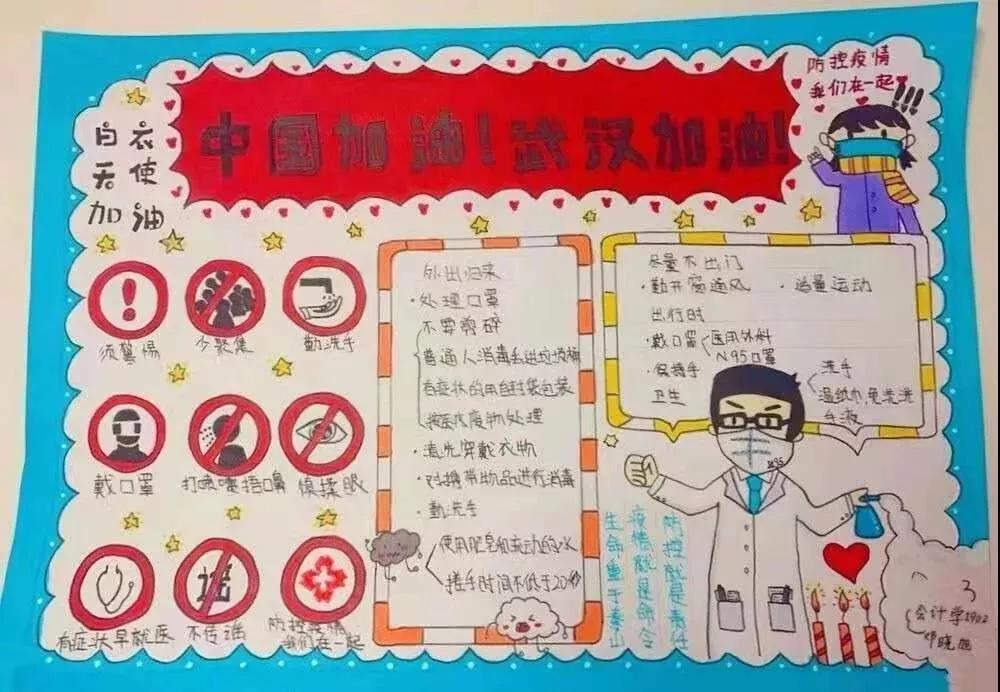 中国加油!武汉加油!
白衣
天使
加油
防控疫情
我们在一起!!!
须警惕
少聚集
勤洗手
戴口罩
打喷嚏捂口鼻
揉眼
有症状早就医
谣
不传谣
防控疫情
我们在一起
外出归来
·处理口罩
不要剪碎
普通人消毒丢进垃圾桶
有症状的用自封袋包装
按医疗废物处理
·清洗穿戴衣物
·对携带物品进行消毒
·勤洗手
使用肥皂和流动的水
搓手时间不低于20秒
尽量不出门
·勤开窗通风 ·适量运动
出行时
·戴口罩
医用外科
N95口罩
·保持手
卫生
洗手
湿纸巾,免洗洗
手液
N95
防控就是责任
疫情就是命令
生命重于泰山
3
会计学1902
邓晓旭